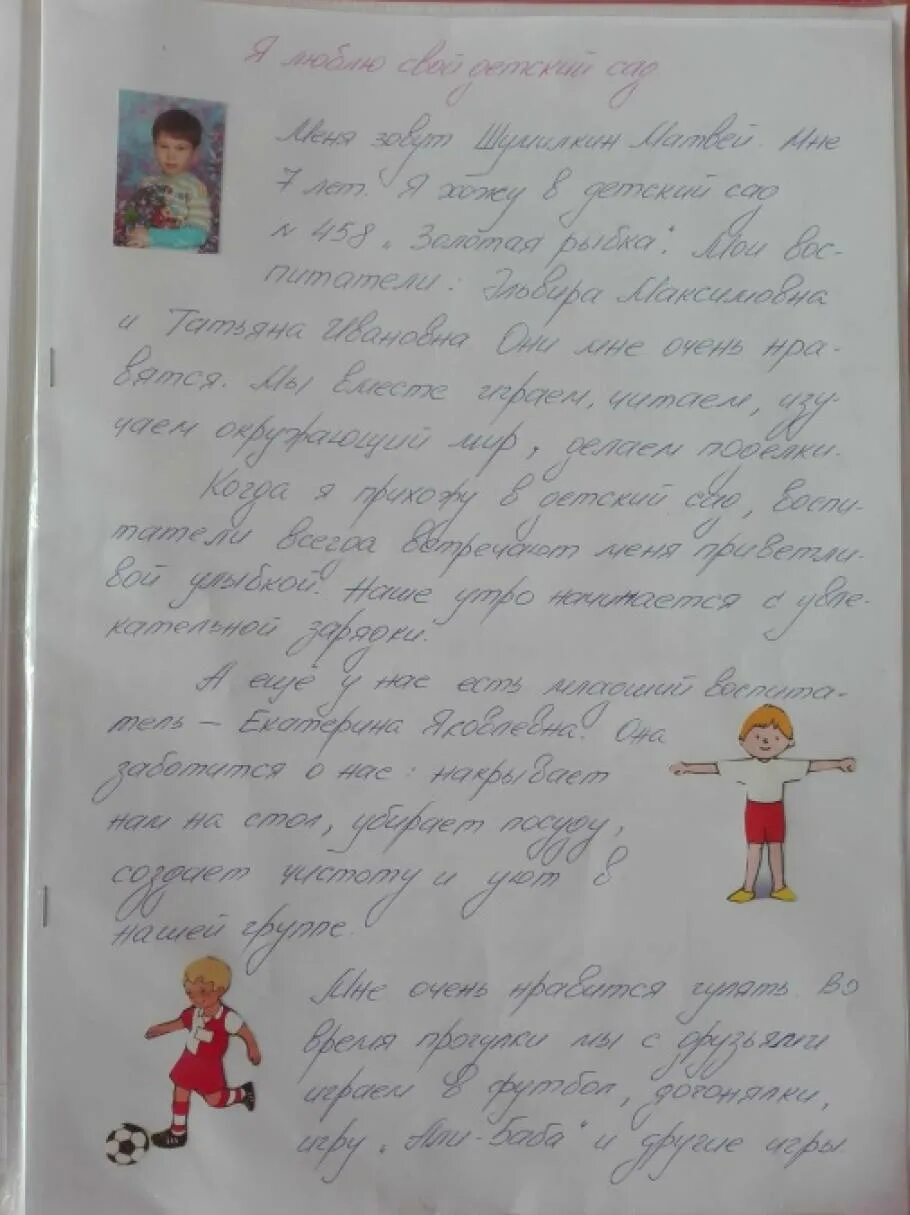 Я люблю свой детский сад.
Меня зовут Шумилкин Матвей. Мне
7 лет. Я хожу в детский сад
№ 458 „Золотая рыбка“. Мои вос-
питатели: Эльвира Максимовна
и Татьяна Ивановна. Они мне очень нра-
вятся. Мы вместе играем, читаем, изу-
чаем окружающий мир, делаем поделки.
Когда я прихожу в детский сад, воспи-
татели всегда встречают меня приветли-
вой улыбкой. Наше утро начинается с увле-
кательной зарядки.
А ещё у нас есть младший воспита-
тель – Екатерина Яковлевна. Она
заботится о нас: накрывает
нам на стол, убирает посуду,
создает чистоту и уют в
нашей группе.
Мне очень нравится гулять. Во
время прогулки мы с друзьями
играем в футбол, догонялки,
игру „Али-Баба“ и другие игры.